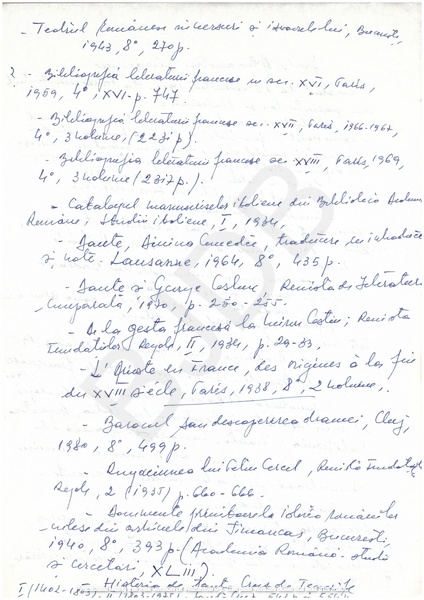 - Teatrul Românesc in versuri și izvoarele lui, București,
1943, 8°, 270p.
2 - Bibliografia literaturii franceze in sec. XVI, Paris,
1959, 4°, XVI-p. 747.
- Bibliografia literaturii franceze sec. XVII, Paris, 1966-1967,
4°, 3 volume, (2231p).
- Bibliografia literaturii franceze sec XVIII, Paris, 1969,
4°, 3 volume (2317p.).
- Catalogul manuscriselor italiene din Biblioteca
Române; Studii italiene, I, 1934,
- Dante, Divina Comedie, traducere
și note. Lausanne, 1964, 8°, 435p.
- Dante și George Coșbuc, Revista de Literatura
Comparată, 1930, p. 250-255.
- De la gesta franceză la Miron Costin; Revista
Fundatiilor Regale, II, 1934, p. 29-33,
- L'Arioste en France, des origines à la fin
du XVIII siécle, Paris, 1938, 8°, 2 volume,.
- Barocul sau descoperirea dramei, Cluj,
1980, 8°, 499p.
- lui Revista
Regale, 2 (1935) p. 660-666.
- Documente privitoare la istoria românilor
culese din arhivele din Simancas, București,
1940, 8°, 393p. (Academia Română. Studii
și cercetări, XLIII).
- Historia de Santa Cruz de Tenerife
I (1402-1803),